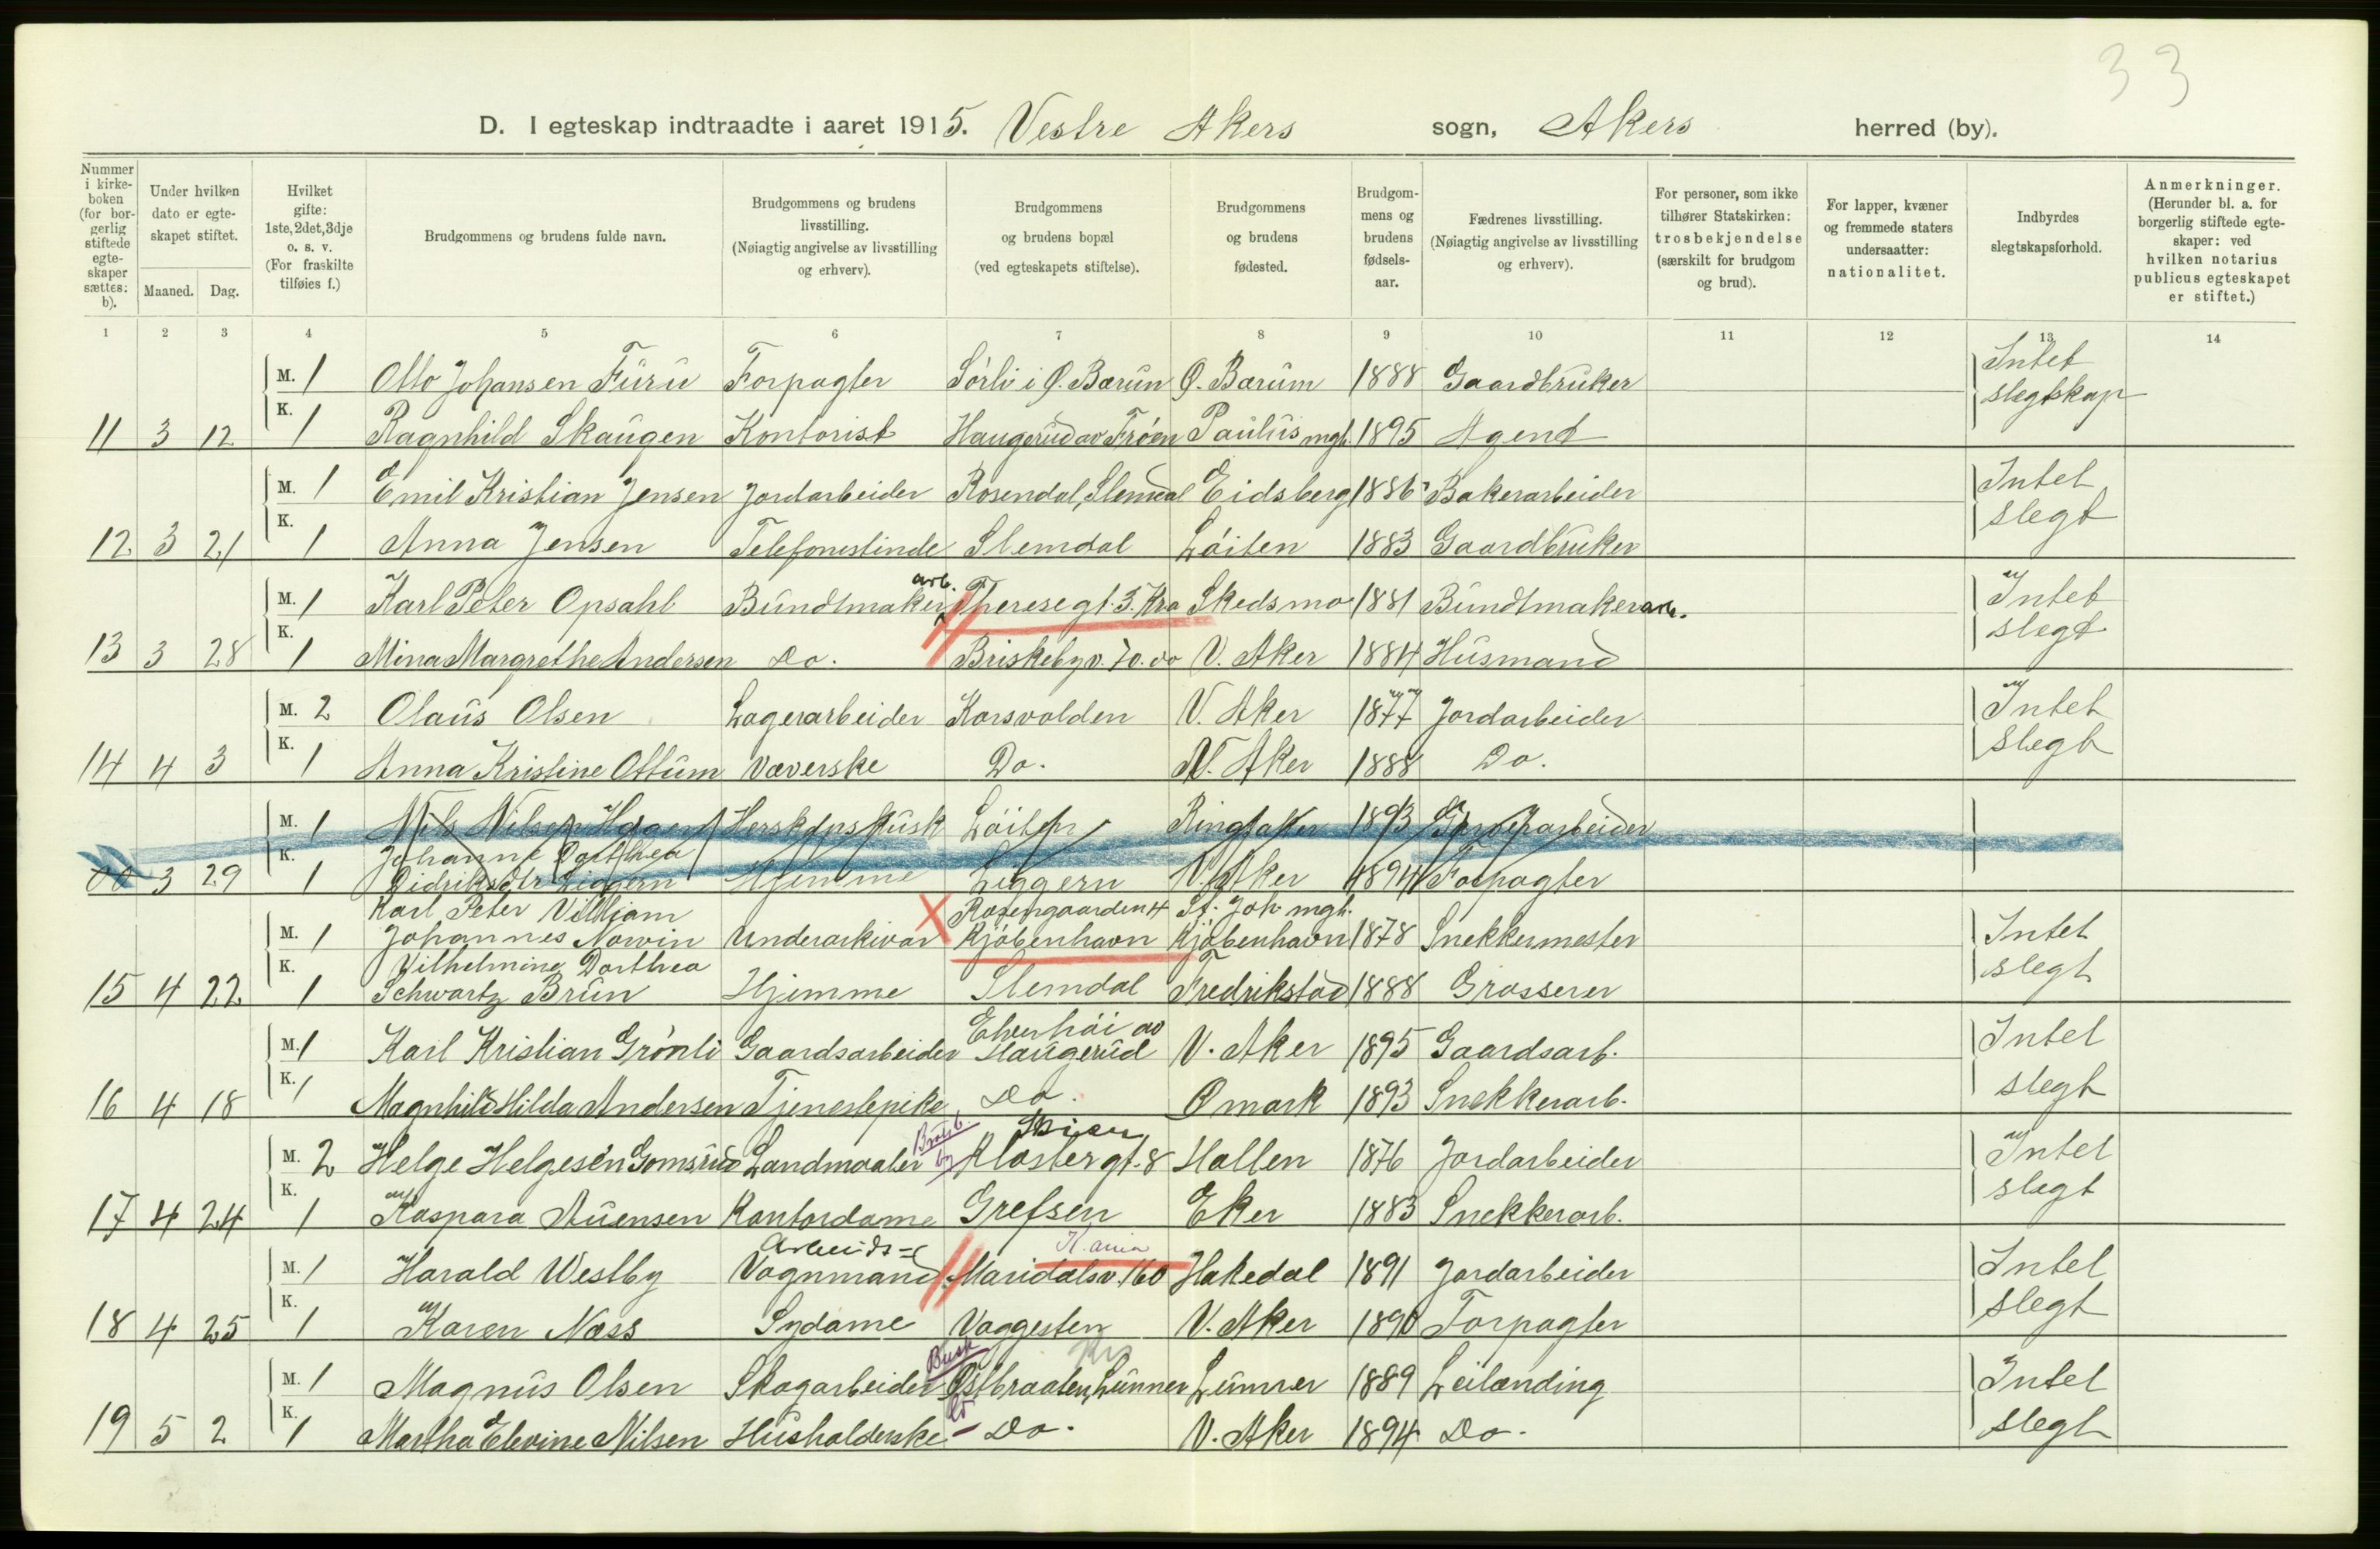 33
D. I egteskap indtraadte i aaret 1915. Vestre Akers sogn, Akers herred (by).
Nummer i kirkeboken (for borgerlig stiftede egteskaper sættes: b).
Under hvilken dato er egteskapet stiftet.
Maaned. Dag.
Hvilket gifte: 1ste, 2det, 3dje o. s. v. (For fraskilte tilføies f.)
Brudgommens og brudens fulde navn.
Brudgommens og brudens livsstilling. (Nøiagtig angivelse av livsstilling og erhverv).
Brudgommens og brudens bopæl (ved egteskapets stiftelse).
Brudgommens og brudens fødested.
Brudgommens og brudens fødselsaar.
Fædrenes livsstilling. (Nøiagtig angivelse av livsstilling og erhverv).
For personer, som ikke tilhører Statskirken: trosbekjendelse (særskilt for brudgom og brud).
For lapper, kvæner og fremmede staters undersaatter: nationalitet.
Indbyrdes slegtskapsforhold.
Anmerkninger. (Herunder bl. a. for borgerlig stiftede egteskaper: ved hvilken notarius publicus egteskapet er stiftet.)
1 2 3 4 5 6 7 8 9 10 11 12 13 14
M. 1 Otto Johansen Furu Forpagter Sørli i Ø. Bærum Ø. Bærum 1888 Gaardbruker Intet
11 3 12 K. 1 Ragnhild Skaugen Kontorist Haugerud av Frøen Paulus mgh. 1895 Agent slegtskap
M. 1 Emil Kristian Jensen Jordarbeider Rosendal, Slemdal Eidsberg 1886 Bakerarbeider Intet
12 3 21 K. 1 Anna Jensen Telefonistinde Slemdal Løiten 1883 Gaardbruker slegt
M. 1 Karl Peter Opsahl Bundtmaker arb. Theresegt. 3. Kra Skedsmo 1881 Bundtmakerarb. Intet
13 3 28 K. 1 Mina Margrethe Andersen Do. Briskebyv. 70. do V. Aker 1884 Husmand slegt
M. 2 Olaus Olsen Lagerarbeider Korsvolden V. Aker 1877 Jordarbeider Intet
14 4 3 K. 1 Anna Kristine Ottum Væverske Do. N. Aker 1888 Do. slegt
M. 1 Nils Nilsen Hagen Herskapskusk Løiten Ringsaker 1893
3 29 K. 1 Johanne Dorthea Didriksdtr Liggern Hjemme Liggern V. Aker 1894 Forpagter
M. 1 Karl Peter Villiam Johannes Norvin Underarkivar Rosengaarden 4 Kjøbenhavn St. Joh. mgh. Kjøbenhavn 1878 Snekkermester Intet
15 4 22 K. 1 Vilhelmine Dorthea Schwartz Brun Hjemme Slemdal Fredrikstad 1888 Grosserer slegt
M. 1 Karl Kristian Grønli Gaardsarbeider Elverhøi av Haugerud V. Aker 1895 Gaardsarb. Intet
16 4 18 K. 1 Magnhild Hilda Andersen Tjenestepike Do. Ømark 1893 Snekkerarb. slegt
M. 2 Helge Helgesen Gomsrud Landmaaler Skien Klostergt. 8 Hollen 1876 Jordarbeider Intet
17 4 24 K. 1 Kaspara Auensen Kontordame Grefsen Eker 1883 Snekkerarb. slegt
M. 1 Harald Westby Arbeids= Vognmand Maridalsv. 160 K.ania Hakedal 1891 Jordarbeider Intet
18 4 25 K. 1 Karen Næss Sydame Vaggesten V. Aker 1890 Forpagter slegt
M. 1 Magnus Olsen Skogarbeider Busk Østbraaten, Lunner Lunner 1889 Leilænding Intet
19 5 2 K. 1 Martha Elevine Nilsen Husholderske - Do. V. Aker 1894 Do. slegt